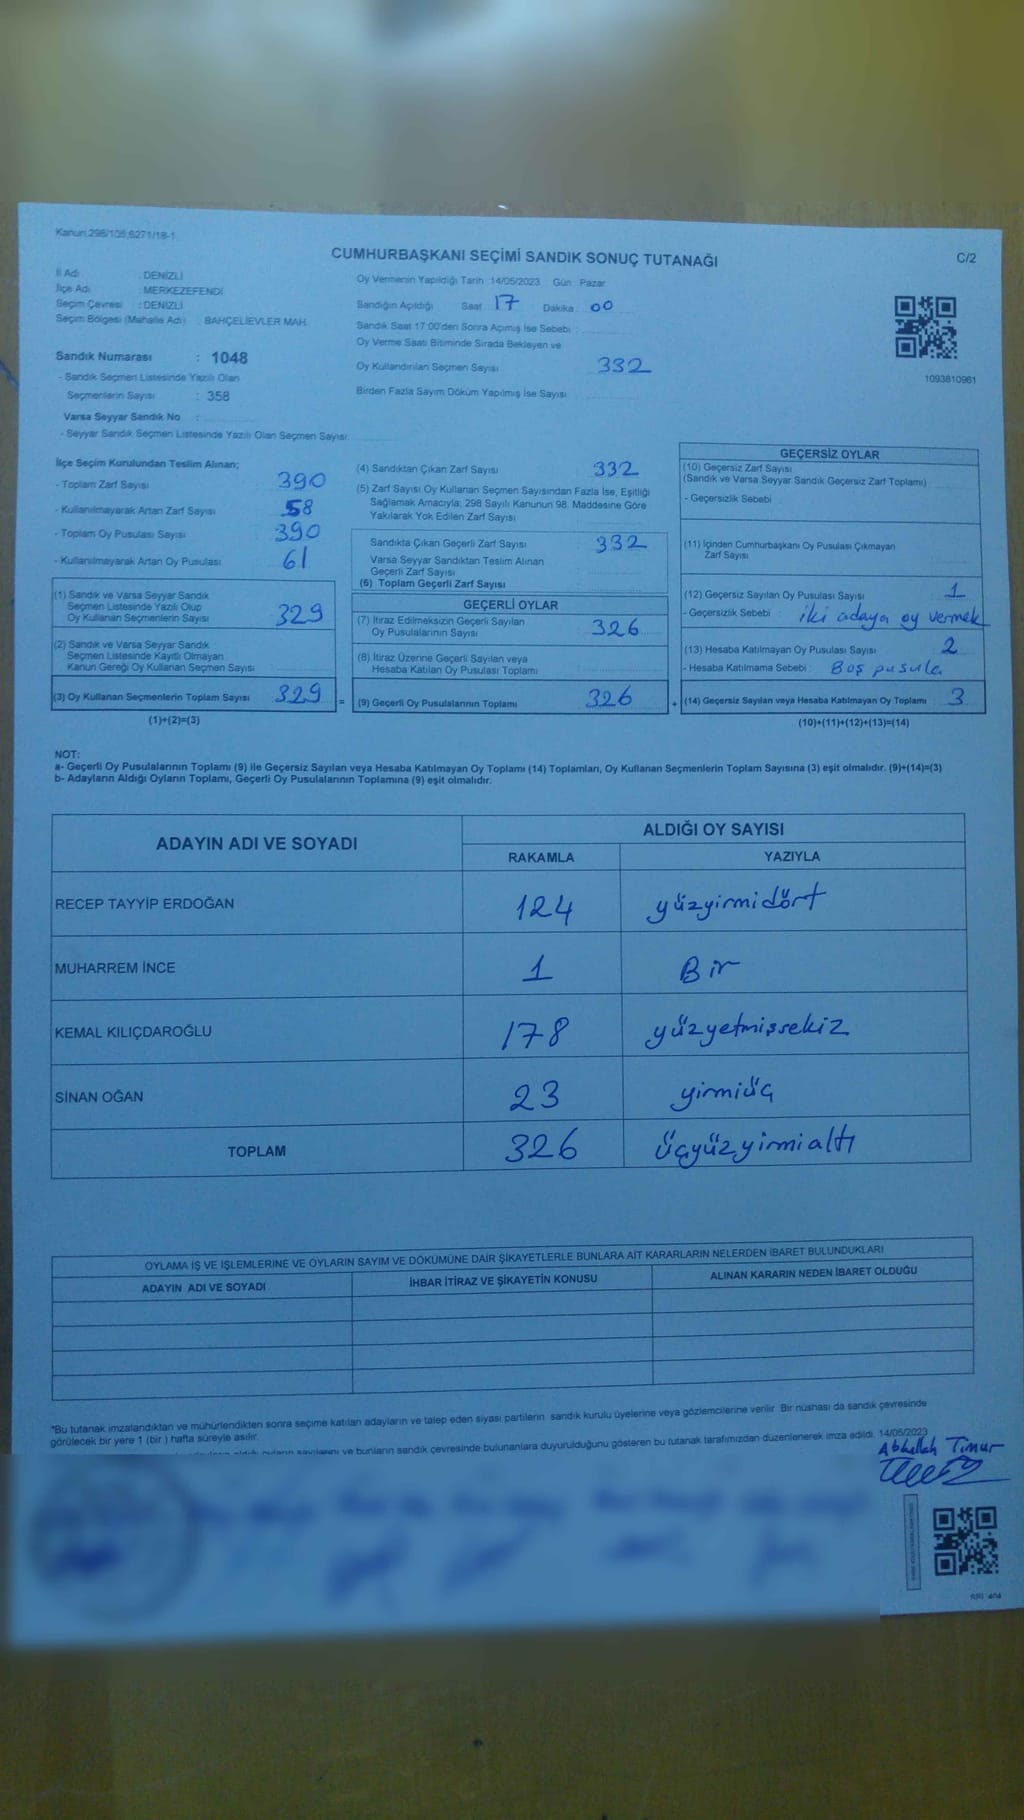 Kanun:298/105,6271/18-1
CUMHURBAŞKANI SEÇİMİ SANDIK SONUÇ TUTANAĞI
C/2
İl Adı : DENİZLİ
İlçe Adı : MERKEZEFENDİ
Seçim Çevresi : DENİZLİ
Seçim Bölgesi (Mahalle Adı) : BAHÇELİEVLER MAH.
Oy Vermenin Yapıldığı Tarih : 14/05/2023 Gün : Pazar
Sandığın Açıldığı Saat : 17 Dakika : 00
Sandık Saat 17:00'den Sonra Açımış İse Sebebi :
Oy Verme Saati Bitiminde Sırada Bekleyen ve
Oy Kullandırılan Seçmen Sayısı 332
Birden Fazla Sayım Döküm Yapılmış İse Sayısı
1093810961
Sandık Numarası : 1048
- Sandık Seçmen Listesinde Yazılı Olan
Seçmenlerin Sayısı : 358
Varsa Seyyar Sandık No :
- Seyyar Sandık Seçmen Listesinde Yazılı Olan Seçmen Sayısı:
İlçe Seçim Kurulundan Teslim Alınan;
- Toplam Zarf Sayısı 390
- Kullanılmayarak Artan Zarf Sayısı 58
- Toplam Oy Pusulası Sayısı 390
- Kullanılmayarak Artan Oy Pusulası 61
(1) Sandık ve Varsa Seyyar Sandık
Seçmen Listesinde Yazılı Olup
Oy Kullanan Seçmenlerin Sayısı 329
(2) Sandık ve Varsa Seyyar Sandık
Seçmen Listesinde Kayıtlı Olmayan
Kanun Gereği Oy Kullanan Seçmen Sayısı
(3) Oy Kullanan Seçmenlerin Toplam Sayısı 329 =
(1)+(2)=(3)
(4) Sandıktan Çıkan Zarf Sayısı 332
(5) Zarf Sayısı Oy Kullanan Seçmen Sayısından Fazla İse, Eşitliği
Sağlamak Amacıyla; 298 Sayılı Kanunun 98. Maddesine Göre
Yakılarak Yok Edilen Zarf Sayısı
Sandıkta Çıkan Geçerli Zarf Sayısı 332
Varsa Seyyar Sandıktan Teslim Alınan
Geçerli Zarf Sayısı
(6) Toplam Geçerli Zarf Sayısı
GEÇERLİ OYLAR
(7) İtiraz Edilmeksizin Geçerli Sayılan
Oy Pusulalarının Sayısı 326
(8) İtiraz Üzerine Geçerli Sayılan veya
Hesaba Katılan Oy Pusulası Toplamı
(9) Geçerli Oy Pusulalarının Toplamı 326 +
GEÇERSİZ OYLAR
(10) Geçersiz Zarf Sayısı
(Sandık ve Varsa Seyyar Sandık Geçersiz Zarf Toplamı)
- Geçersizlik Sebebi :
(11) İçinden Cumhurbaşkanı Oy Pusulası Çıkmayan
Zarf Sayısı
(12) Geçersiz Sayılan Oy Pusulası Sayısı 1
- Geçersizlik Sebebi : iki adaya oy vermek
(13) Hesaba Katılmayan Oy Pusulası Sayısı 2
- Hesaba Katılmama Sebebi : Boş pusula
(14) Geçersiz Sayılan veya Hesaba Katılmayan Oy Toplamı 3
(10)+(11)+(12)+(13)=(14)
NOT:
a- Geçerli Oy Pusulalarının Toplamı (9) ile Geçersiz Sayılan veya Hesaba Katılmayan Oy Toplamı (14) Toplamları, Oy Kullanan Seçmenlerin Toplam Sayısına (3) eşit olmalıdır. (9)+(14)=(3)
b- Adayların Aldığı Oyların Toplamı, Geçerli Oy Pusulalarının Toplamına (9) eşit olmalıdır.
ADAYIN ADI VE SOYADI ALDIĞI OY SAYISI
RAKAMLA YAZIYLA
RECEP TAYYİP ERDOĞAN 124 yüzyirmidört
MUHARREM İNCE 1 Bir
KEMAL KILIÇDAROĞLU 178 yüzyetmişsekiz
SİNAN OĞAN 23 yirmiüç
TOPLAM 326 üçyüzyirmialtı
OYLAMA İŞ VE İŞLEMLERİNE VE OYLARIN SAYIM VE DÖKÜMÜNE DAİR ŞİKAYETLERLE BUNLARA AİT KARARLARIN NELERDEN İBARET BULUNDUKLARI
ADAYIN ADI VE SOYADI İHBAR İTİRAZ VE ŞİKAYETİN KONUSU ALINAN KARARIN NEDEN İBARET OLDUĞU
*Bu tutanak imzalandıktan ve mühürlendikten sonra seçime katılan adayların ve talep eden siyasi partilerin sandık kurulu üyelerine veya gözlemcilerine verilir. Bir nüshası da sandık çevresinde
görülecek bir yere 1 (bir ) hafta süreyle asılır.
oyların sayılarını ve bunların sandık çevresinde bulunanlara duyurulduğunu gösteren bu tutanak tarafımızdan düzenlenerek imza edildi. 14/05/2023
Abdullah Timur